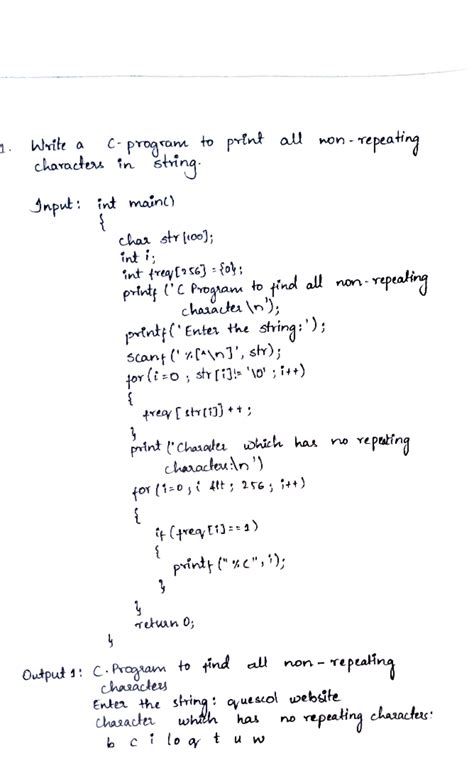 1. Write a C-program to print all non-repeating
characters in string.
Input: int main()
{
char str[100];
int i;
int freq[256] = {0};
printf ('C Program to find all non-repeating
character \n');
printf('Enter the string:');
scanf(' %[^\n]', str);
for(i=0 ; str[i]!= '\0' ; i++)
{
freq[str[i]]++;
}
print ('Charater which has no repeting
character:\n')
for (i=0; i &lt; 256; i++)
{
if (freq[i]==1)
{
printf("%c", i);
}
}
return 0;
}
Output 1: C-Program to find all non-repeating
characters
Enter the string: quescol website
character which has no repeating characters:
b c i l o q t u w